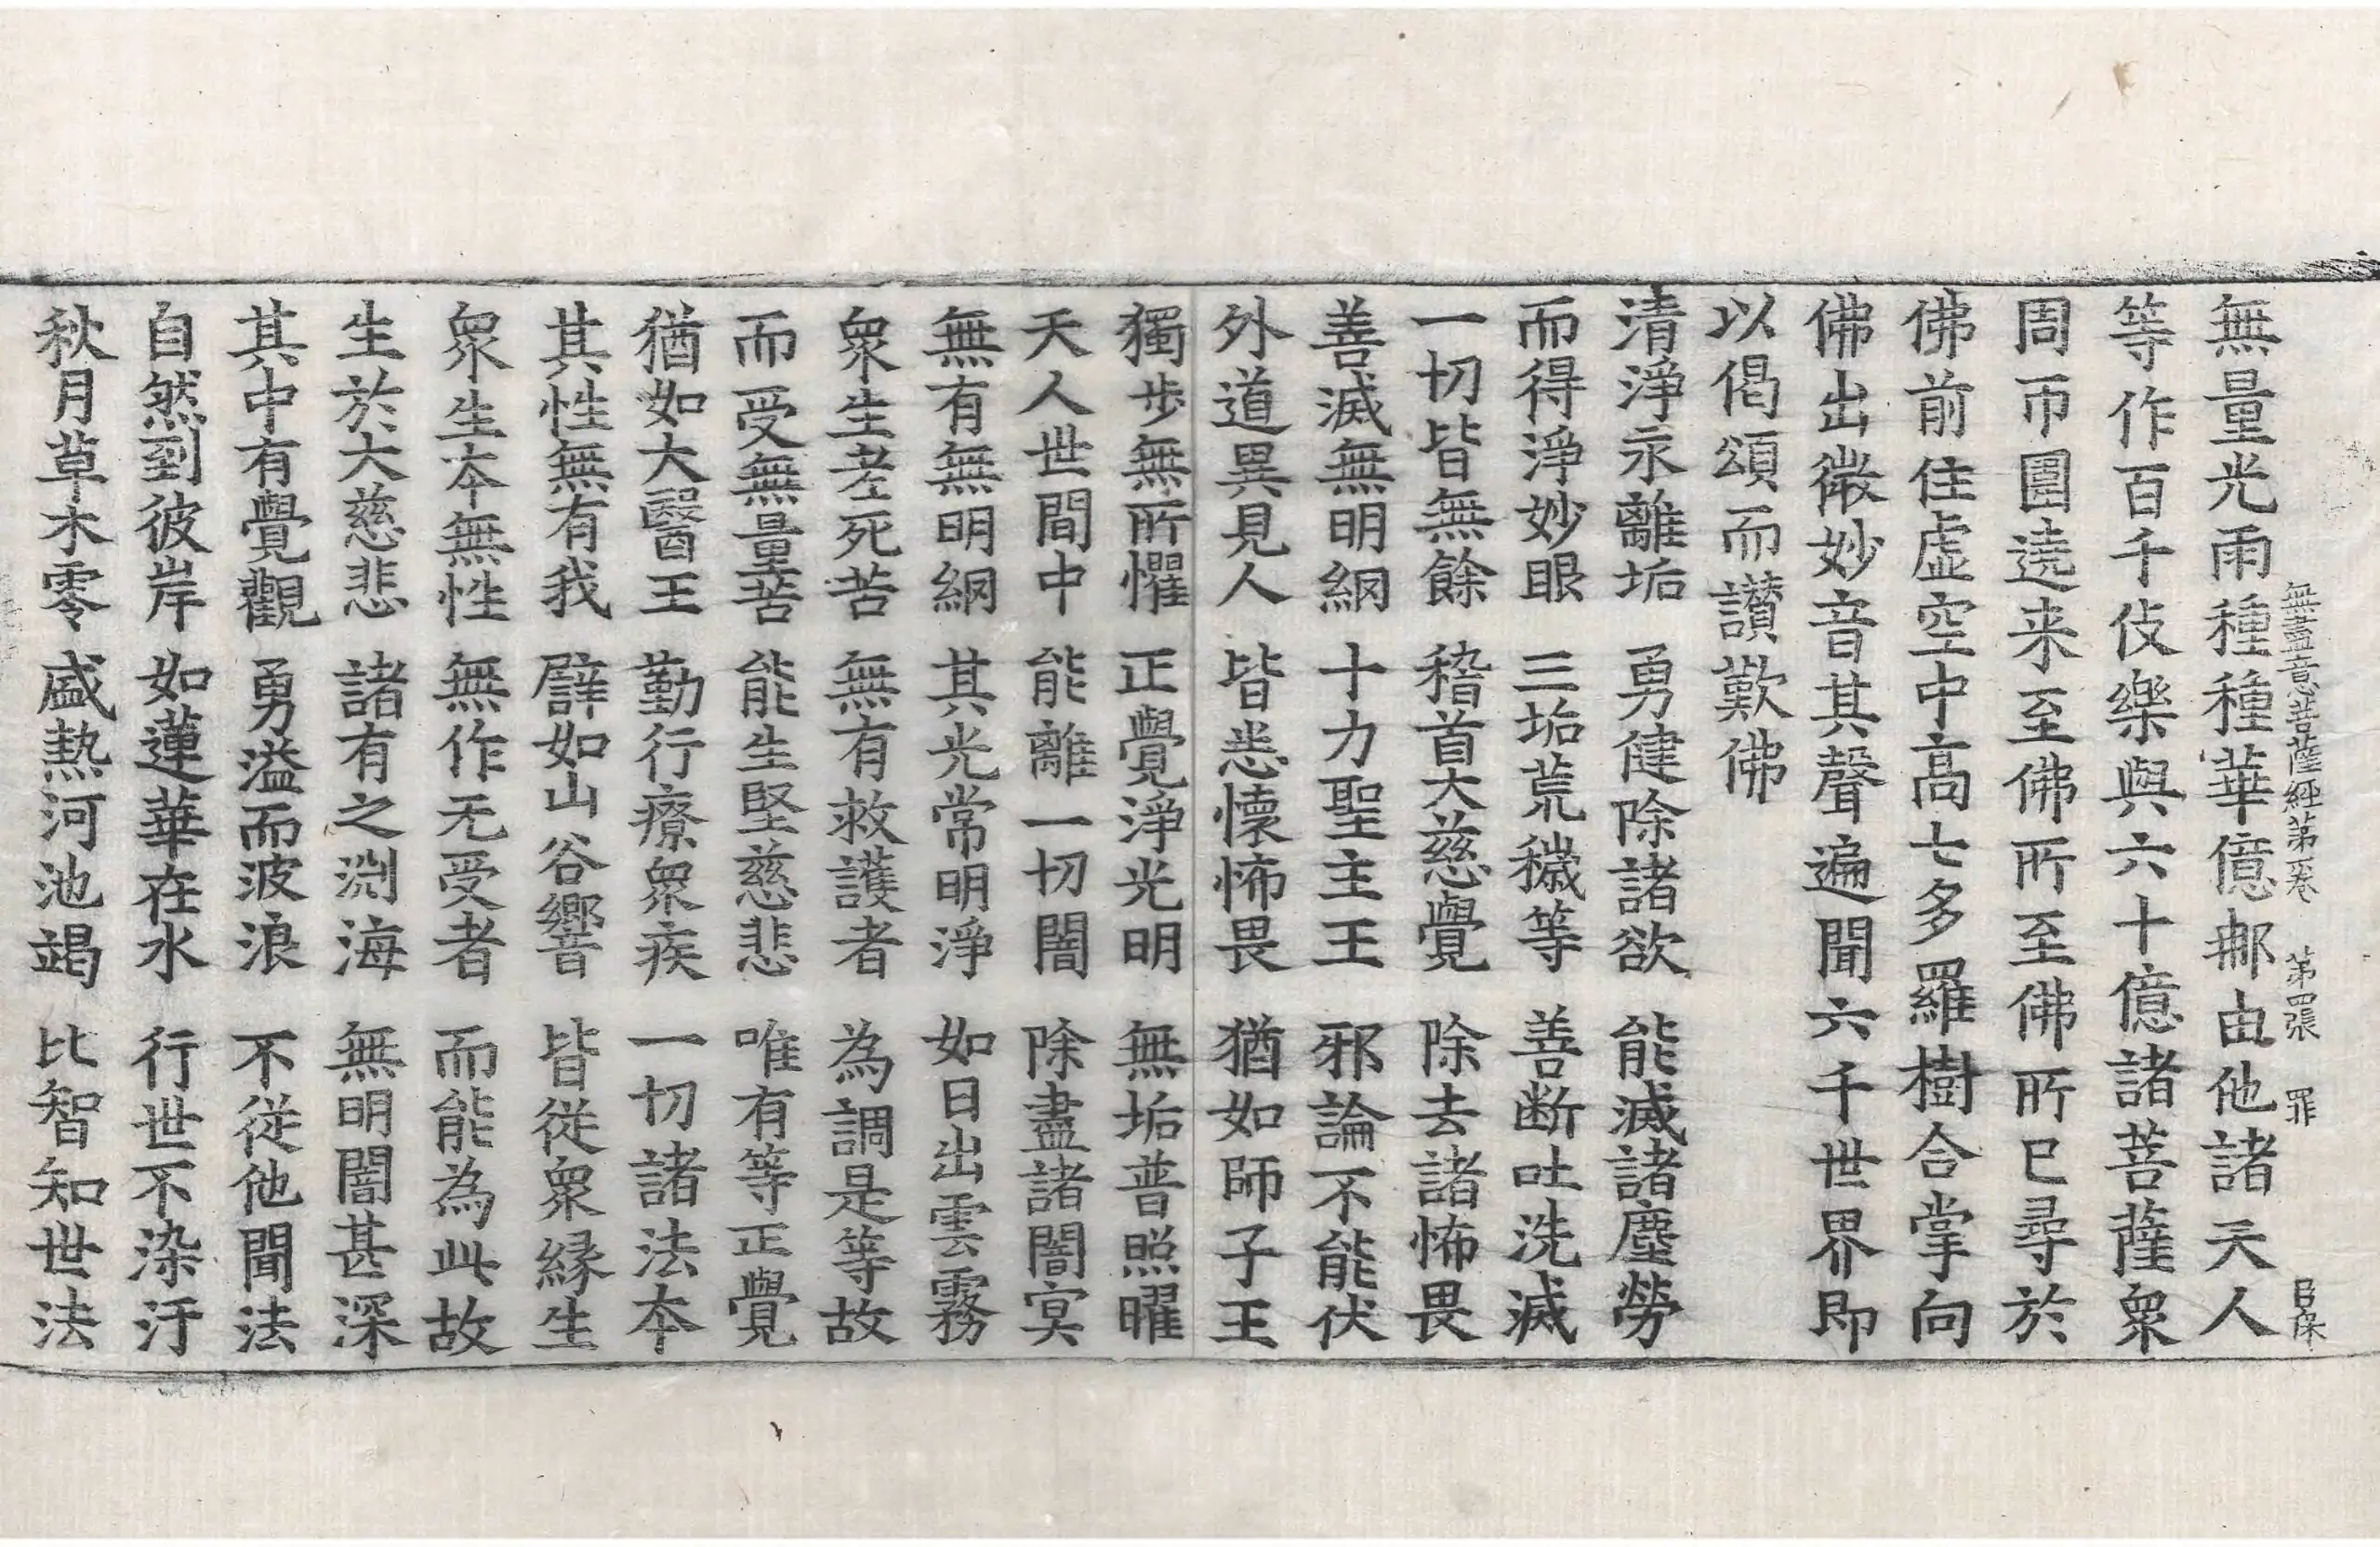 無盡意菩薩經第一卷 第四張 罪
無量光雨種種華億那由他諸天人
等作百千伎樂與六十億諸菩薩衆
周帀圍遶来至佛所至佛所已尋於
佛前住虚空中高七多羅樹合掌向
佛出微妙音其聲遍聞六千世界即
以偈頌而讃歎佛
清淨永離垢 勇健除諸欲 能滅諸塵勞
而得淨妙眼 三垢荒穢等 善断吐洗滅
一切皆無餘 稽首大慈覺 除去諸怖畏
善滅無明網 十力聖主王 邪論不能伏
外道異見人 皆悉懷怖畏 猶如師子王
獨步無所懼 正覺淨光明 無垢普照曜
天人世間中 能離一切闇 除盡諸闇冥
無有無明網 其光常明淨 如日出雲霧
衆生老死苦 無有救護者 為調是等故
而受無量苦 能生堅慈悲 唯有等正覺
猶如大醫王 勤行療衆疾 一切諸法本
其性無有我 譬如山谷響 皆從衆縁生
衆生本無性 無作无受者 而能為此故
生於大慈悲 諸有之淵海 無明闇甚深
其中有覺觀 勇溢而波浪 不從他聞法
自然到彼岸 如蓮華在水 行世不染汙
秋月草木零 盛熱河池竭 比智知世法